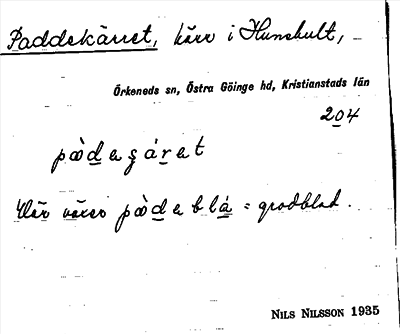 Paddekärret, kärr i Hunshult, –
Örkeneds sn, Östra Göinge hd, Kristianstads län
204
pàdegáret
Där växer pàdeblá = grodblad.
NILS NILSSON 1935